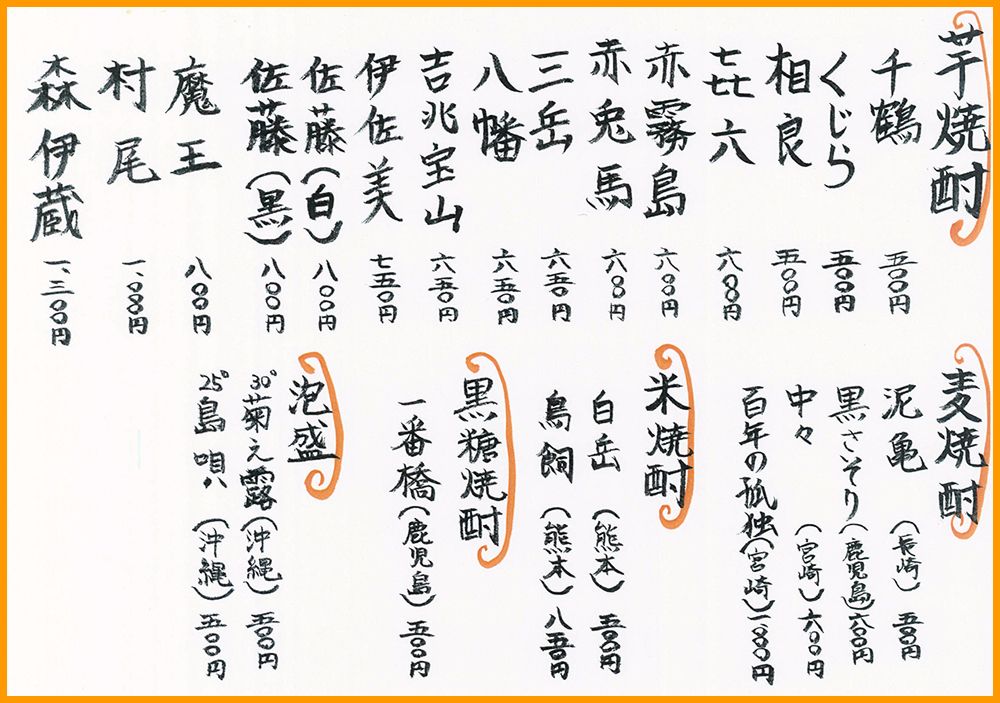 芋焼酎
千鶴 五〇〇円
くじら 五〇〇円
相良 五〇〇円
㐂六 六〇〇円
赤霧島 六〇〇円
赤兎馬 六〇〇円
三岳 六五〇円
八幡 六五〇円
吉兆宝山 六五〇円
伊佐美 七五〇円
佐藤(白) 八〇〇円
佐藤(黒) 八〇〇円
魔王 八〇〇円
村尾 一、〇〇〇円
森伊蔵 一、三〇〇円
麦焼酎
泥亀 (長崎) 五〇〇円
黒さそり(鹿児島)六〇〇円
中々 (宮崎)六〇〇円
百年の孤独(宮崎)一、〇〇〇円
米焼酎
白岳 (熊本) 五〇〇円
鳥飼 (熊本) 八五〇円
黒糖焼酎
一番橋(鹿児島) 五〇〇円
泡盛
30°菊之露(沖縄) 五〇〇円
25°島唄 (沖縄) 五〇〇円